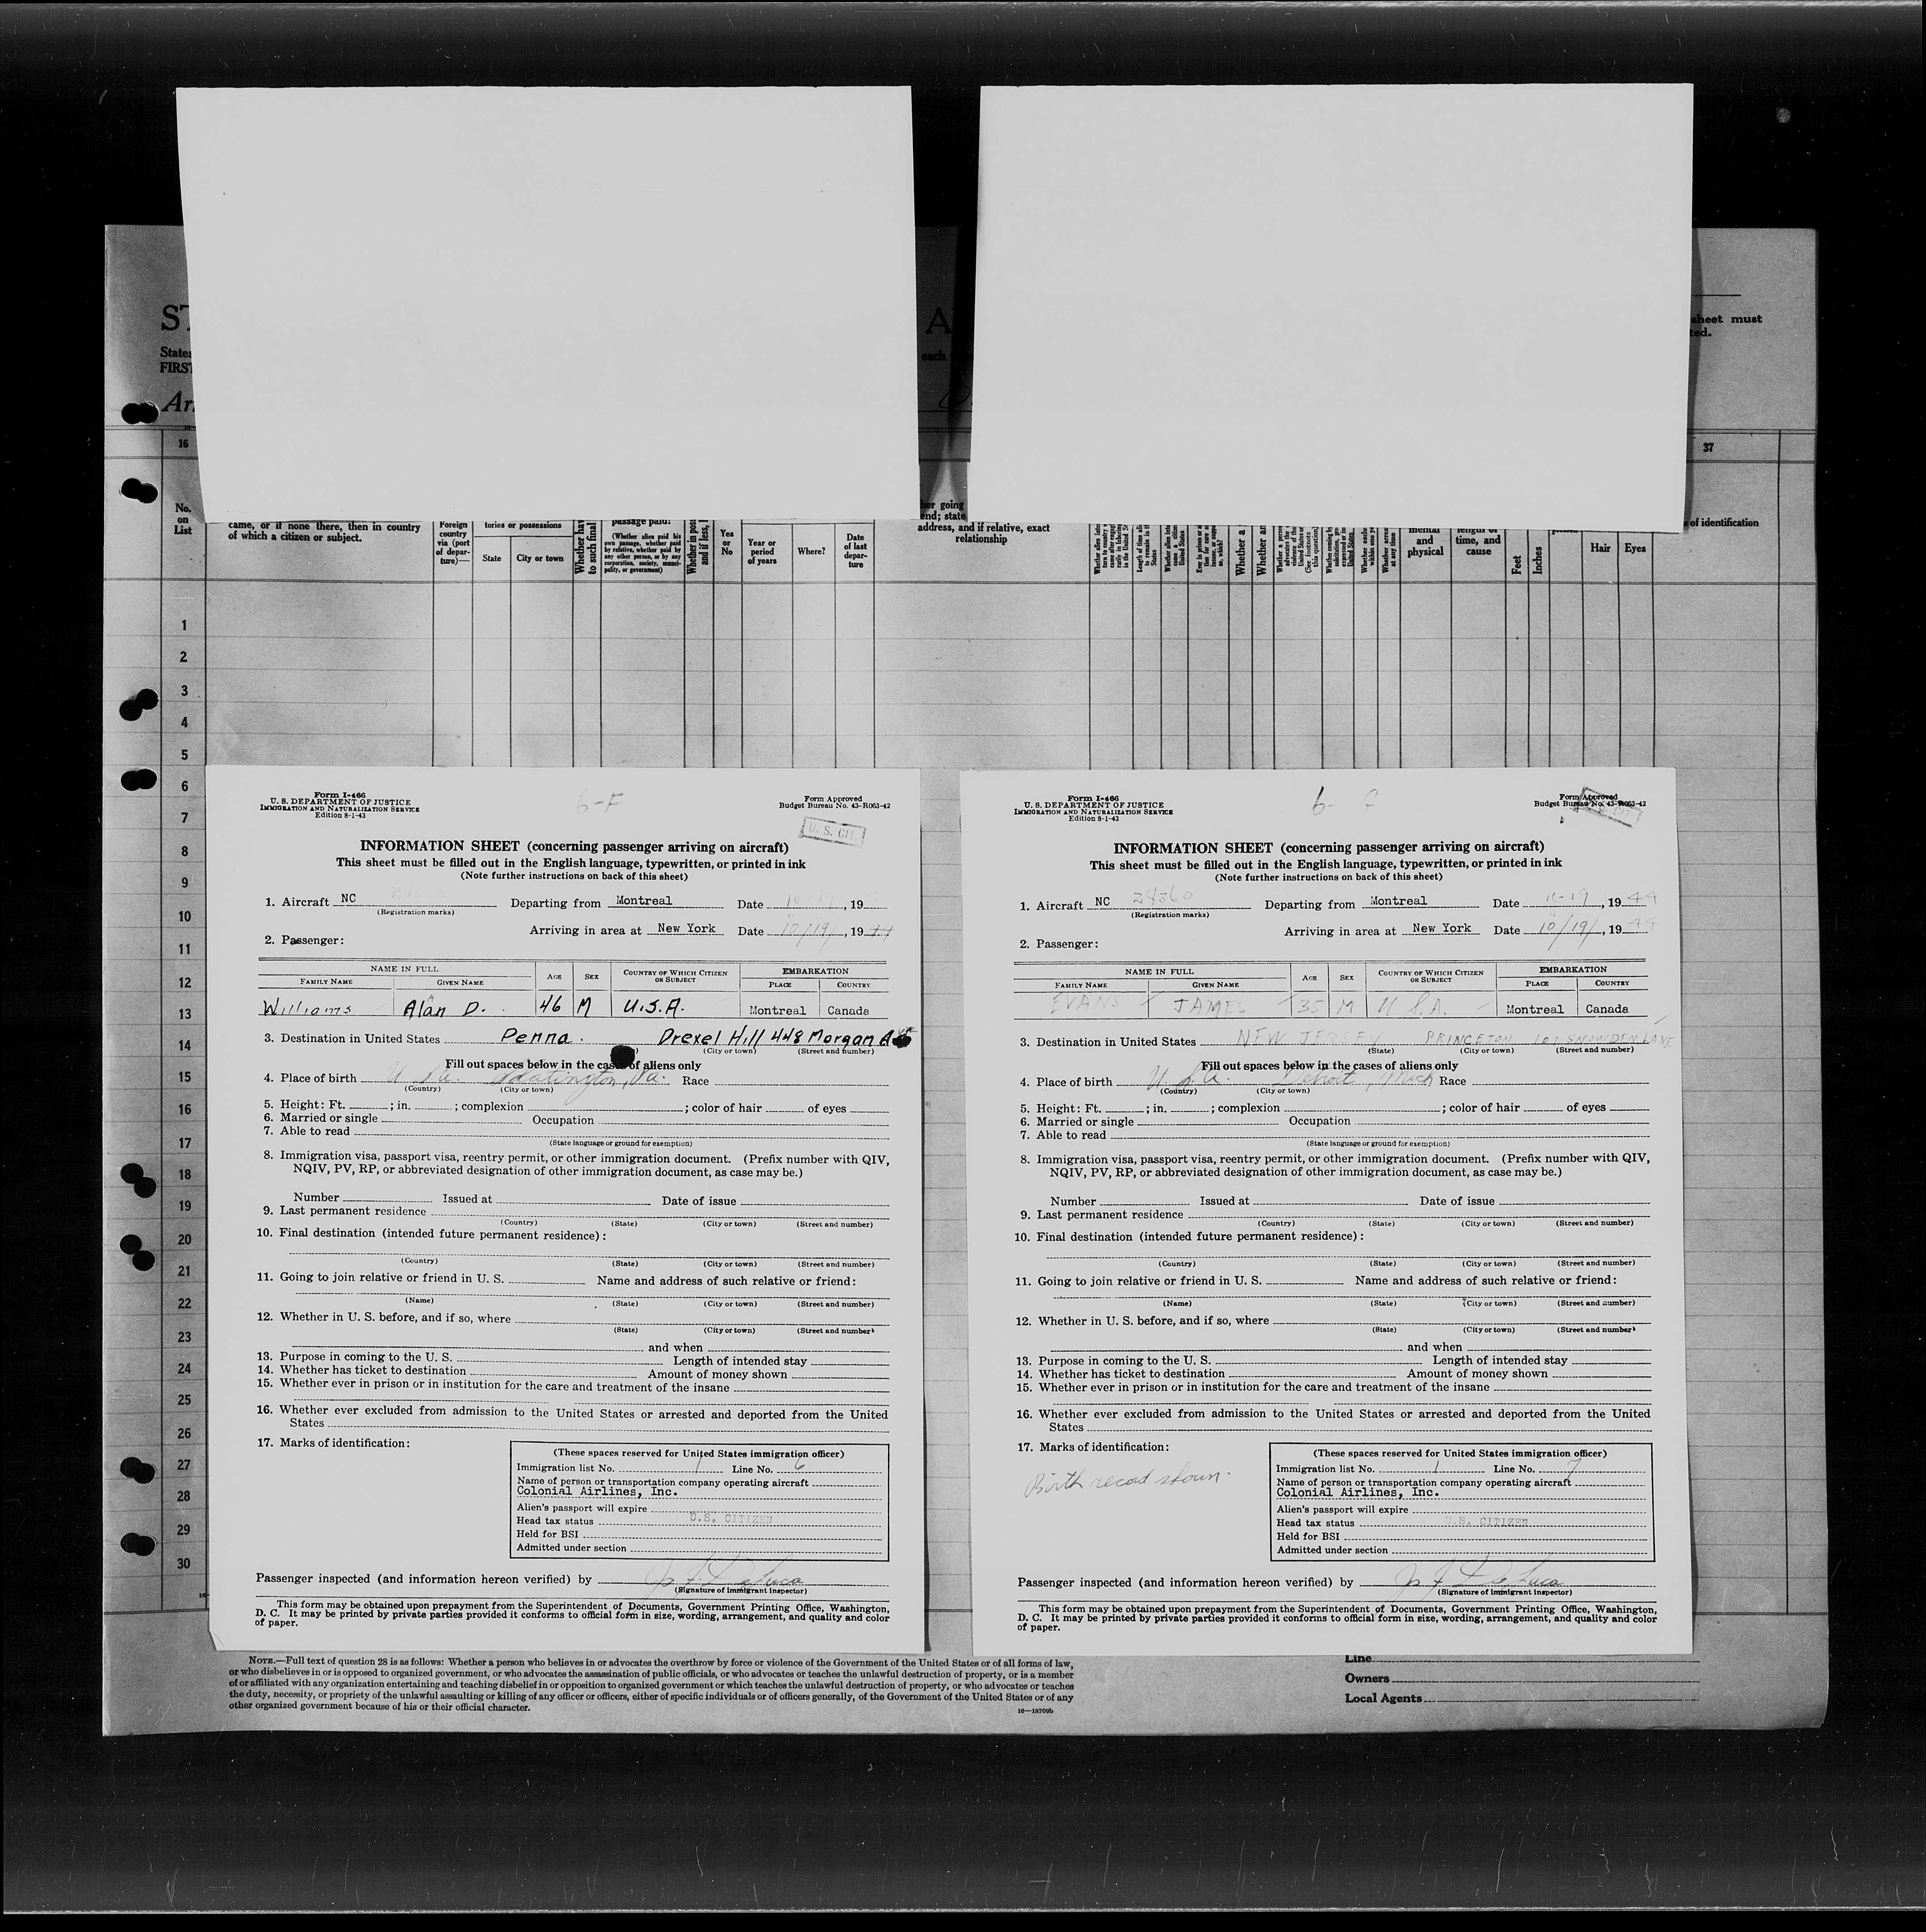 ST
A
sheet must
ted.
States
each
FIRST
Arr
16
37
No.
on
List
came, or if none there, then in country
of which a citizen or subject.
Foreign
country
via (port
of depar-
ture)—
tories or possessions
State
City or town
Whether hav
to such final
passage paid?
(Whether alien paid his
own passage, whether paid
by relative, whether paid by
any other person, or by any
corporation, society, munici-
pality, or government)
Whether in poss
and if less,
Yes
or
No
Year or
period
of years
Where?
Date
of last
depar-
ture
her going
end; state
address, and if relative, exact
relationship
Whether a
Whether an
mental
and
physical
length of
time, and
cause
Feet
Inches
Hair
Eyes
of identification
1
2
3
4
5
6
7
8
9
10
11
12
13
14
15
16
17
18
19
20
21
22
23
24
25
26
27
28
29
30
Form I-466
U. S. DEPARTMENT OF JUSTICE
IMMIGRATION AND NATURALIZATION SERVICE
Edition 8-1-43
6-F
Form Approved
Budget Bureau No. 43-R063-42
U. S. CIT.
INFORMATION SHEET (concerning passenger arriving on aircraft)
This sheet must be filled out in the English language, typewritten, or printed in ink
(Note further instructions on back of this sheet)
1. Aircraft NC Departing from Montreal Date 10-19, 19
(Registration marks)
Arriving in area at New York Date 10/19/, 1944
2. Passenger:
NAME IN FULL
FAMILY NAME GIVEN NAME AGE SEX COUNTRY OF WHICH CITIZEN OR SUBJECT EMBARKATION PLACE COUNTRY
Williams Alan D. 46 M U.S.A. Montreal Canada
3. Destination in United States Penna. Drexel Hill 448 Morgan Ave
(City or town) (Street and number)
Fill out spaces below in the cases of aliens only
4. Place of birth U.S.A. Race
(Country) (City or town)
5. Height: Ft. ; in. ; complexion ; color of hair of eyes
6. Married or single Occupation
7. Able to read
(State language or ground for exemption)
8. Immigration visa, passport visa, reentry permit, or other immigration document. (Prefix number with QIV,
NQIV, PV, RP, or abbreviated designation of other immigration document, as case may be.)
Number Issued at Date of issue
9. Last permanent residence
(Country) (State) (City or town) (Street and number)
10. Final destination (intended future permanent residence):
(Country) (State) (City or town) (Street and number)
11. Going to join relative or friend in U. S. Name and address of such relative or friend:
(Name) (State) (City or town) (Street and number)
12. Whether in U. S. before, and if so, where
(State) (City or town) (Street and number)
and when
13. Purpose in coming to the U. S. Length of intended stay
14. Whether has ticket to destination Amount of money shown
15. Whether ever in prison or in institution for the care and treatment of the insane
16. Whether ever excluded from admission to the United States or arrested and deported from the United
States
17. Marks of identification:
(These spaces reserved for United States immigration officer)
Immigration list No. 1 Line No. 6
Name of person or transportation company operating aircraft
Colonial Airlines, Inc.
Alien's passport will expire
Head tax status U.S. CITIZEN
Held for BSI
Admitted under section
Passenger inspected (and information hereon verified) by
(Signature of immigrant inspector)
This form may be obtained upon prepayment from the Superintendent of Documents, Government Printing Office, Washington,
D. C. It may be printed by private parties provided it conforms to official form in size, wording, arrangement, and quality and color
of paper.
Form I-466
U. S. DEPARTMENT OF JUSTICE
IMMIGRATION AND NATURALIZATION SERVICE
Edition 8-1-43
6-
Form Approved
Budget Bureau No. 43-R063-42
INFORMATION SHEET (concerning passenger arriving on aircraft)
This sheet must be filled out in the English language, typewritten, or printed in ink
(Note further instructions on back of this sheet)
1. Aircraft NC 28360 Departing from Montreal Date 10-19, 1944
(Registration marks)
Arriving in area at New York Date 10/19/, 1944
2. Passenger:
NAME IN FULL
FAMILY NAME GIVEN NAME AGE SEX COUNTRY OF WHICH CITIZEN OR SUBJECT EMBARKATION PLACE COUNTRY
EVANS JAMES 35 M U.S.A. Montreal Canada
3. Destination in United States NEW JERSEY PRINCETON 101 SNOWDEN LANE
(State) (City or town) (Street and number)
Fill out spaces below in the cases of aliens only
4. Place of birth U.S.A. Detroit, Mich Race
(Country) (City or town)
5. Height: Ft. ; in. ; complexion ; color of hair of eyes
6. Married or single Occupation
7. Able to read
(State language or ground for exemption)
8. Immigration visa, passport visa, reentry permit, or other immigration document. (Prefix number with QIV,
NQIV, PV, RP, or abbreviated designation of other immigration document, as case may be.)
Number Issued at Date of issue
9. Last permanent residence
(Country) (State) (City or town) (Street and number)
10. Final destination (intended future permanent residence):
(Country) (State) (City or town) (Street and number)
11. Going to join relative or friend in U. S. Name and address of such relative or friend:
(Name) (State) (City or town) (Street and number)
12. Whether in U. S. before, and if so, where
(State) (City or town) (Street and number)
and when
13. Purpose in coming to the U. S. Length of intended stay
14. Whether has ticket to destination Amount of money shown
15. Whether ever in prison or in institution for the care and treatment of the insane
16. Whether ever excluded from admission to the United States or arrested and deported from the United
States
17. Marks of identification:
Birth record shown.
(These spaces reserved for United States immigration officer)
Immigration list No. 1 Line No. 7
Name of person or transportation company operating aircraft
Colonial Airlines, Inc.
Alien's passport will expire
Head tax status U.S. CITIZEN
Held for BSI
Admitted under section
Passenger inspected (and information hereon verified) by
(Signature of immigrant inspector)
This form may be obtained upon prepayment from the Superintendent of Documents, Government Printing Office, Washington,
D. C. It may be printed by private parties provided it conforms to official form in size, wording, arrangement, and quality and color
of paper.
NOTE.—Full text of question 28 is as follows: Whether a person who believes in or advocates the overthrow by force or violence of the Government of the United States or of all forms of law,
or who disbelieves in or is opposed to organized government, or who advocates the assassination of public officials, or who advocates or teaches the unlawful destruction of property, or is a member
of or affiliated with any organization entertaining and teaching disbelief in or opposition to organized government or which teaches the unlawful destruction of property, or who advocates or teaches
the duty, necessity, or propriety of the unlawful assaulting or killing of any officer or officers, either of specific individuals or of officers generally, of the Government of the United States or of any
other organized government because of his or their official character.
16—18709b
Line
Owners
Local Agents